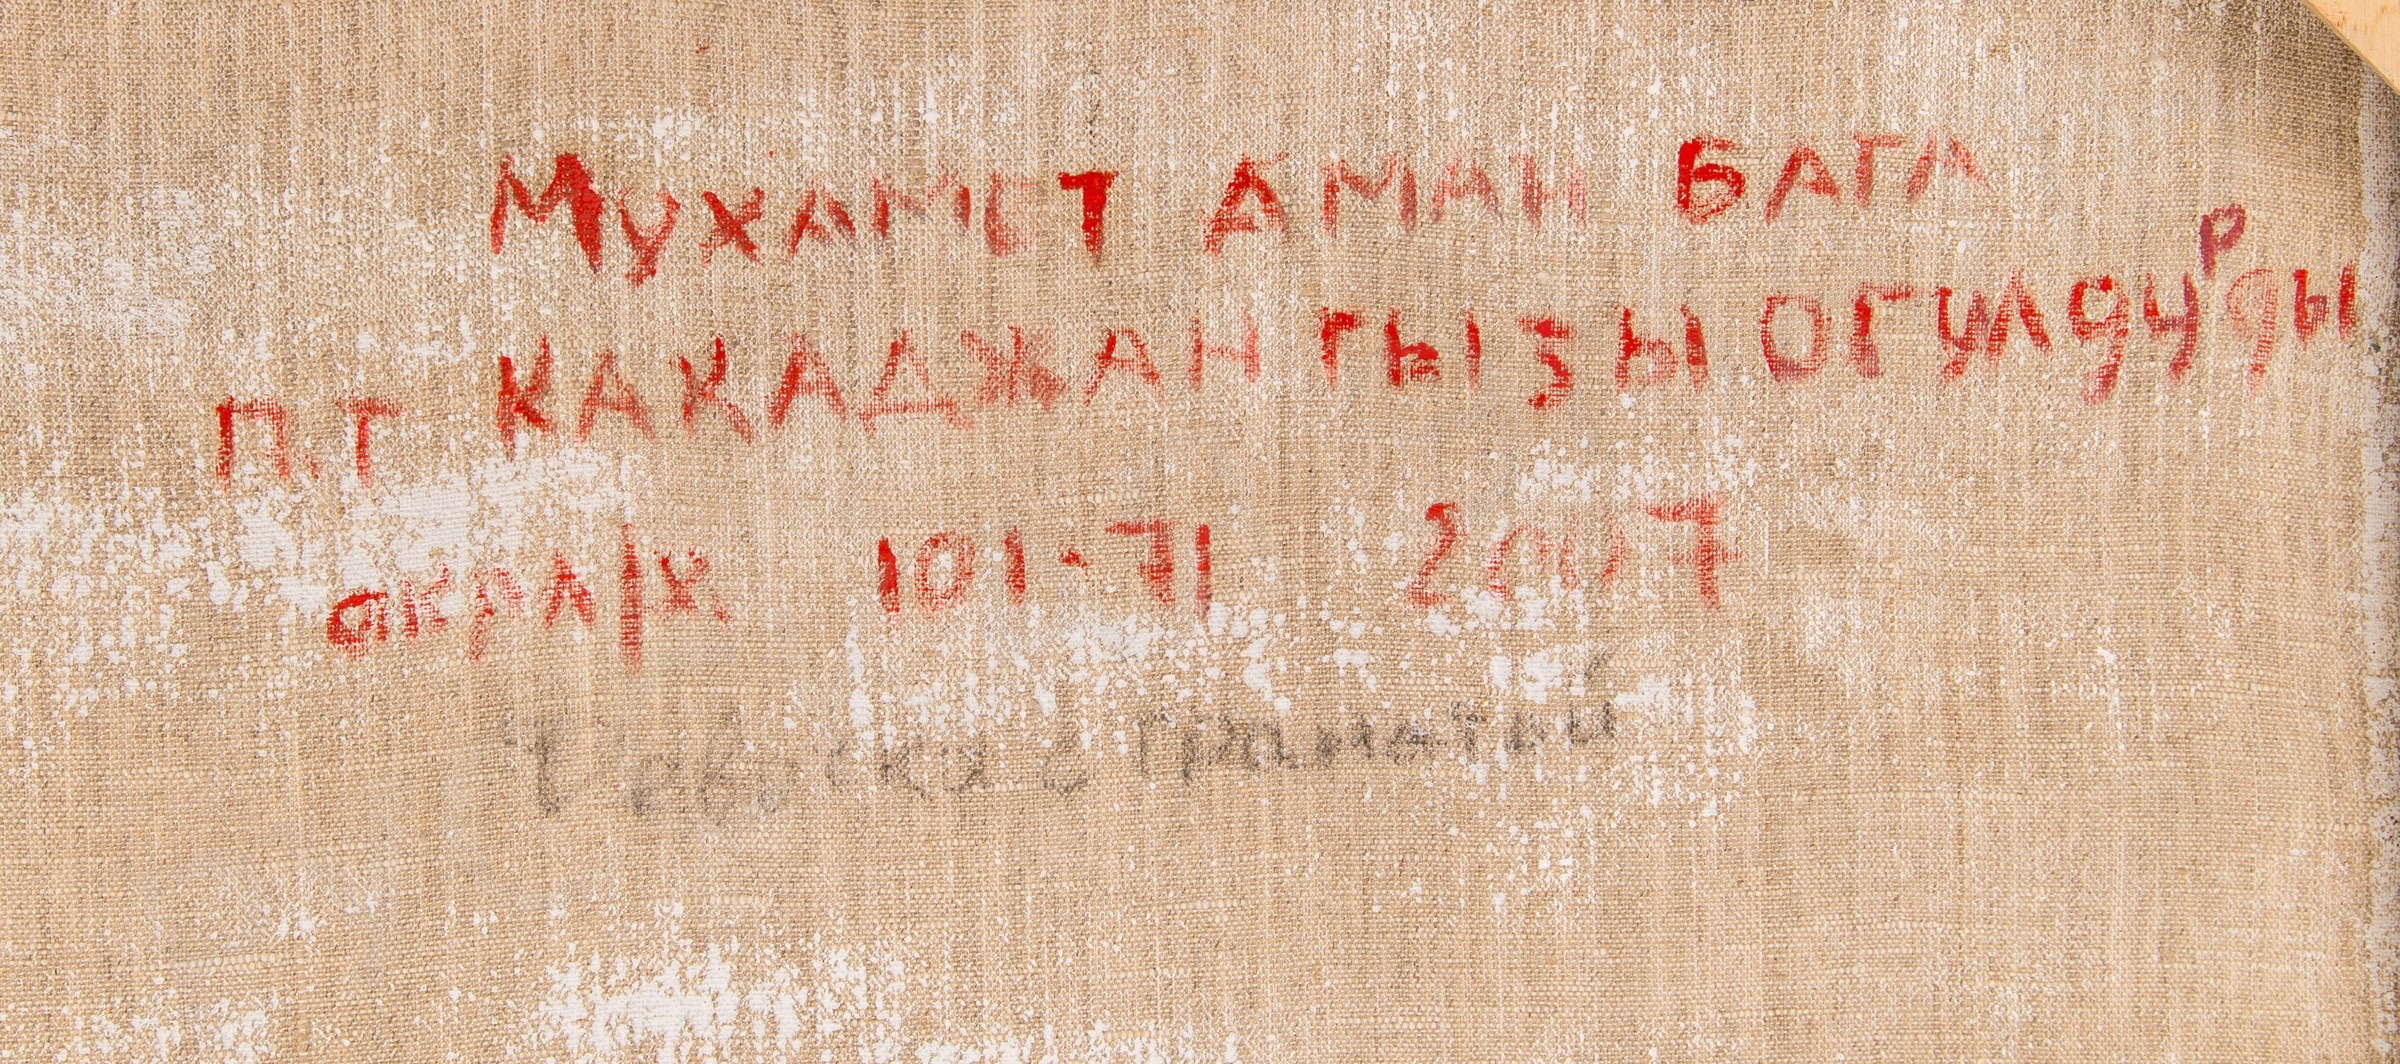 МУХАМЕТ АМАН БАГА
П.Т КАКАДЖАН ГЫЗЫ ОГУЛДУРДЫ
акрл/х 101·71 2007
с гранатай